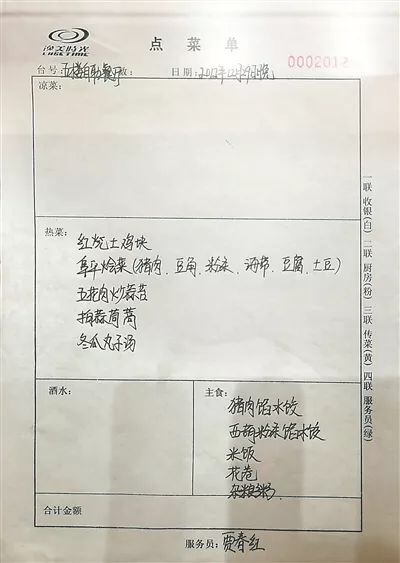 逸美时光
LUGE TIME
点菜单
0002012
台号：五楼自助餐厅 数： 日期：2012年12月29日晚
凉菜：
热菜：
红烧土鸡块
阜平烩菜（猪肉、豆角、粉条、海带、豆腐、土豆）
五花肉炒蒜苔
拍蒜茼蒿
冬瓜丸子汤
酒水：
主食：
猪肉馅水饺
西葫粉条馅水饺
米饭
花卷
杂粮粥
合计金额
服务员：贾春红
一联 收银(白) 二联 厨房(粉) 三联 传菜(黄) 四联 服务员(绿)